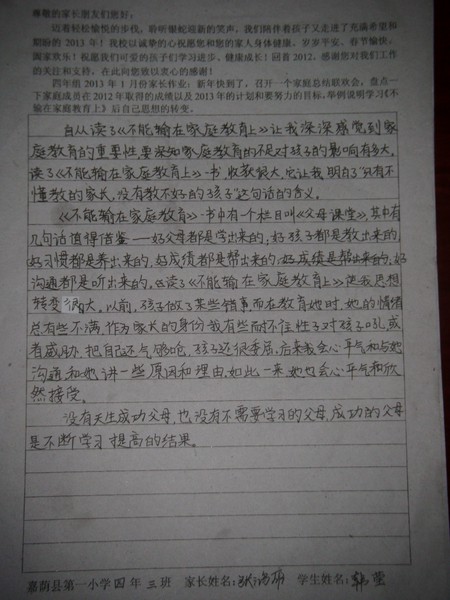 尊敬的家长朋友们您好:
迈着轻松愉悦的步伐,聆听银蛇迎新的笑声,我们陪伴着孩子又走进了充满希望和
期盼的2013年!我校以诚挚的心祝愿您和您的家人身体健康、岁岁平安、春节愉快、
阖家欢乐!祝愿我们可爱的孩子们学习进步、健康成长!回首2012,感谢您对我们工作
的关注和支持,在此向您致以衷心的感谢!
四年组2013年1月份家长作业:新年快到了,召开一个家庭总结联欢会,盘点一
下家庭成员在2012年取得的成绩以及2013年的计划和要努力的目标,举例说明学习《不
输在家庭教育上》后自己思想的转变。
自从读了《不能输在家庭教育上》让我深深感觉到家
庭教育的重要性,要深知家庭教育的不足对孩子的影响有多大,
读了《不能输在家庭教育上》一书,收获很大,它让我明白了“只有不
懂教的家长,没有教不好的孩子”这句话的含义。
《不能输在家庭教育》一书中有一个栏目叫《父母课堂》,其中有
几句话值得借鉴——好父母都是学出来的,好孩子都是教出来的
好习惯都是养出来的,好成绩都是帮出来的,好成绩是帮出来的,好
沟通都是听出来的,《读了《不能输在家庭教育上》使我思想
转变很大。以前,孩子做了某些错事而在教育她时,她的情绪
总有些不满,作为家长的身份我有些耐不住性子对孩子吼,或
者威胁,把自己还气够呛,孩子还很委屈,后来我会心平气和与她
沟通和她讲一些原因和理由,如此一来她也会心平气和欣
然接受。
没有天生成功父母,也没有不需要学习的父母,成功的父母
是不断学习提高的结果。
嘉荫县第一小学四年三班 家长姓名: 学生姓名:韩莹